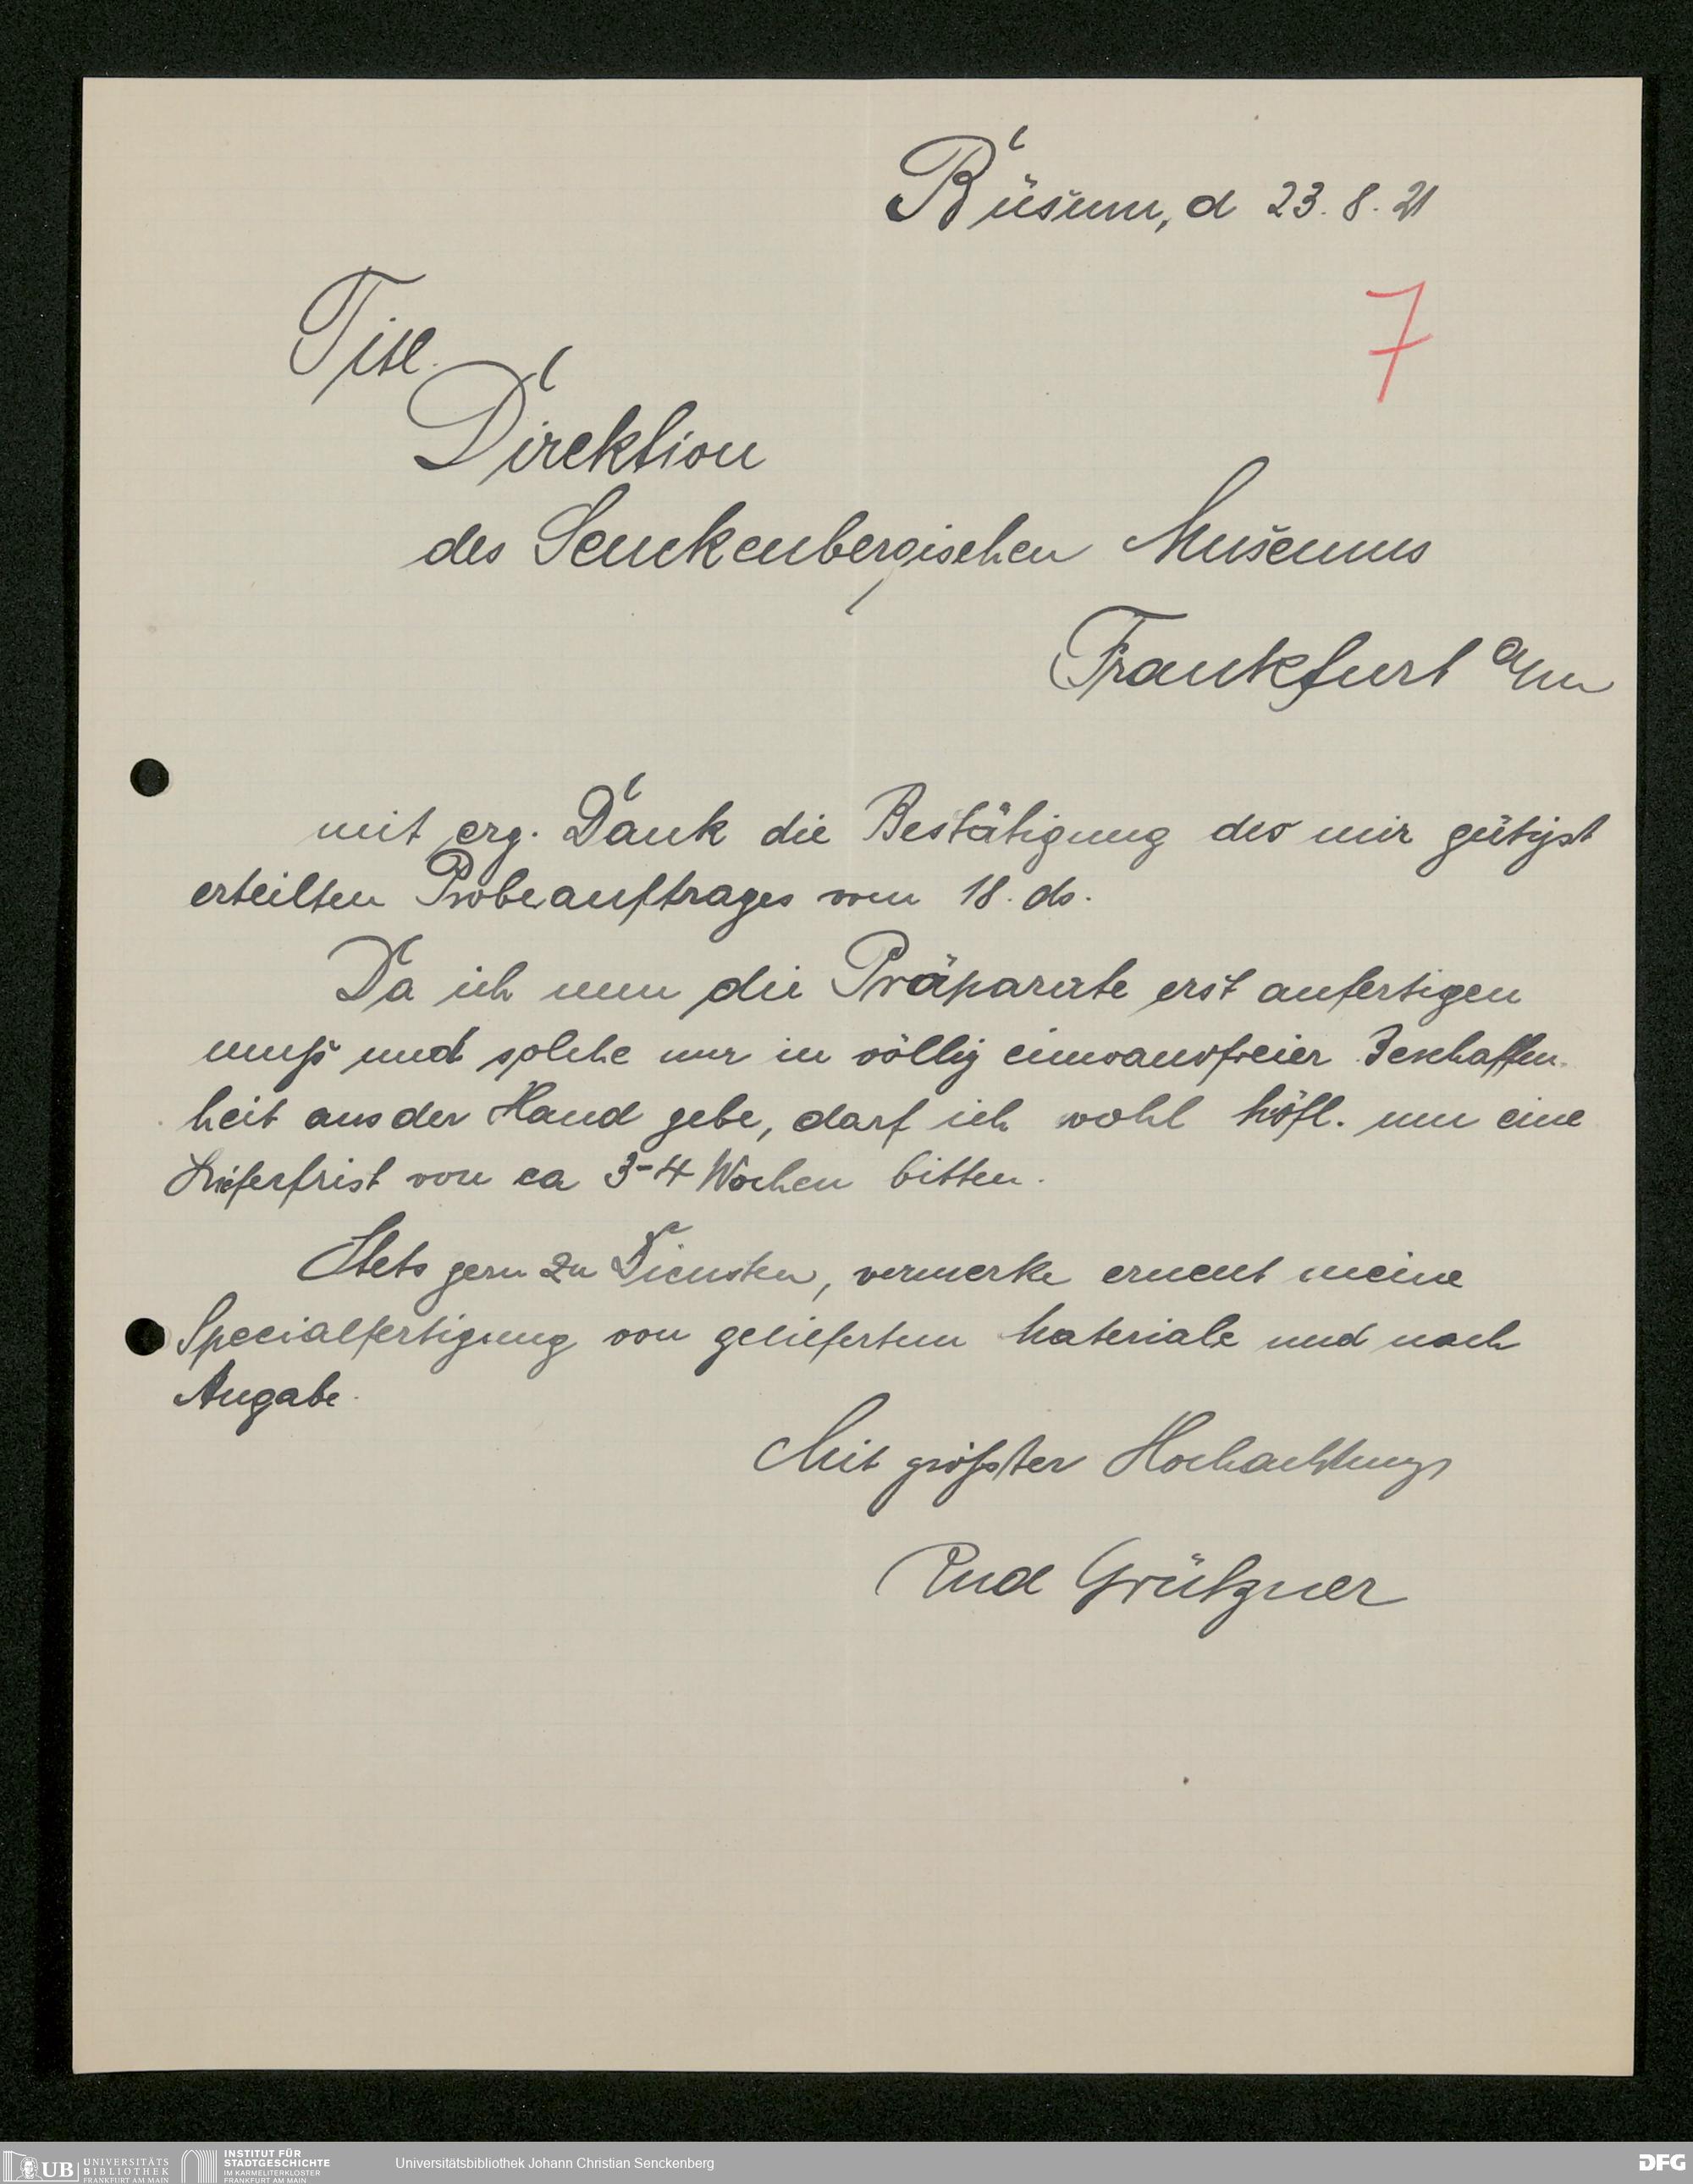 Büsum, d 23. 8. 21
7
Titl.
Direktion
des Senckenbergischen Museums
Frankfurt a/m
mit erg. Dank die Bestätigung des mir gütigst
erteilten Probeauftrages vom 18. ds.
Da ich nun die Präparate erst anfertigen
muß und solche nur in völlig einwandfreier Beschaffen-
heit aus der Hand gebe, darf ich wohl höfl. um eine
Lieferfrist von ca 3-4 Wochen bitten.
Stets gern zu Diensten, vermerke erneut meine
Specialfertigung von geliefertem Materiale und nach
Angabe.
Mit größter Hochachtung
Rud Grützner
UB UNIVERSITÄTS
BIBLIOTHEK
FRANKFURT AM MAIN
INSTITUT FÜR
STADTGESCHICHTE
IM KARMELITERKLOSTER
FRANKFURT AM MAIN
Universitätsbibliothek Johann Christian Senckenberg
DFG